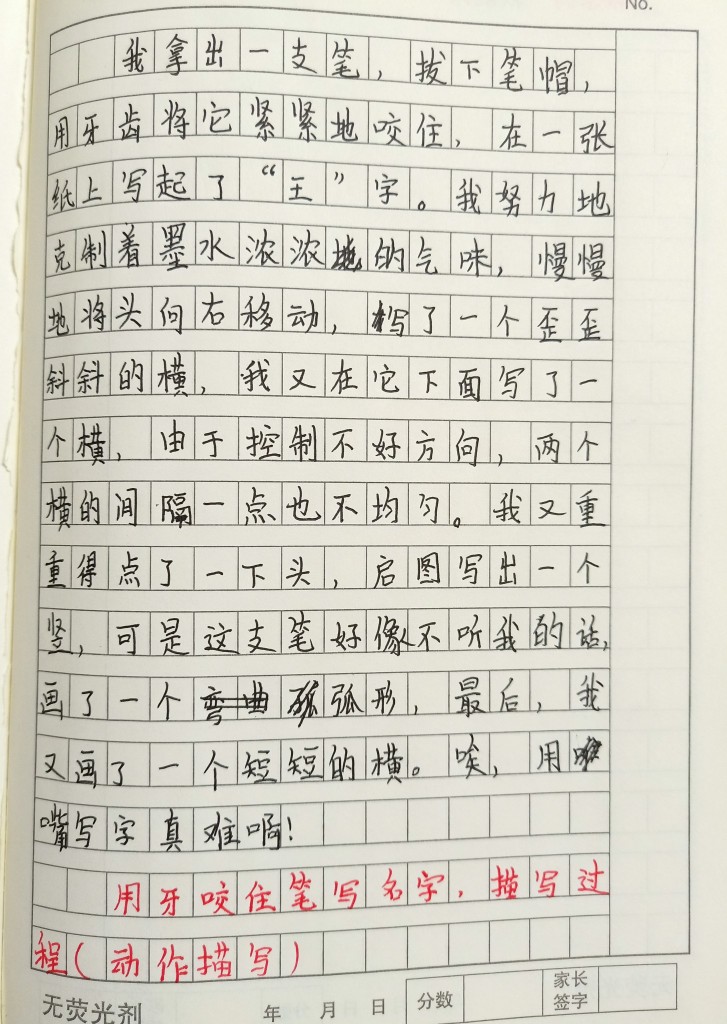 No.
我拿出一支笔，拔下笔帽，
用牙齿将它紧紧地咬住，在一张
纸上写起了“王”字。我努力地
克制着墨水浓浓的气味，慢慢
地将头向右移动，写了一个歪歪
斜斜的横，我又在它下面写了一
个横，由于控制不好方向，两个
横的间隔一点也不均匀。我又重
重得点了一下头，启图写出一个
竖，可是这支笔好像不听我的话，
画了一个弧形，最后，我
又画了一个短短的横。唉，用
嘴写字真难啊！
用牙咬住笔写名字，描写过
程（动作描写）
无荧光剂 年 月 日 分数 家长签字